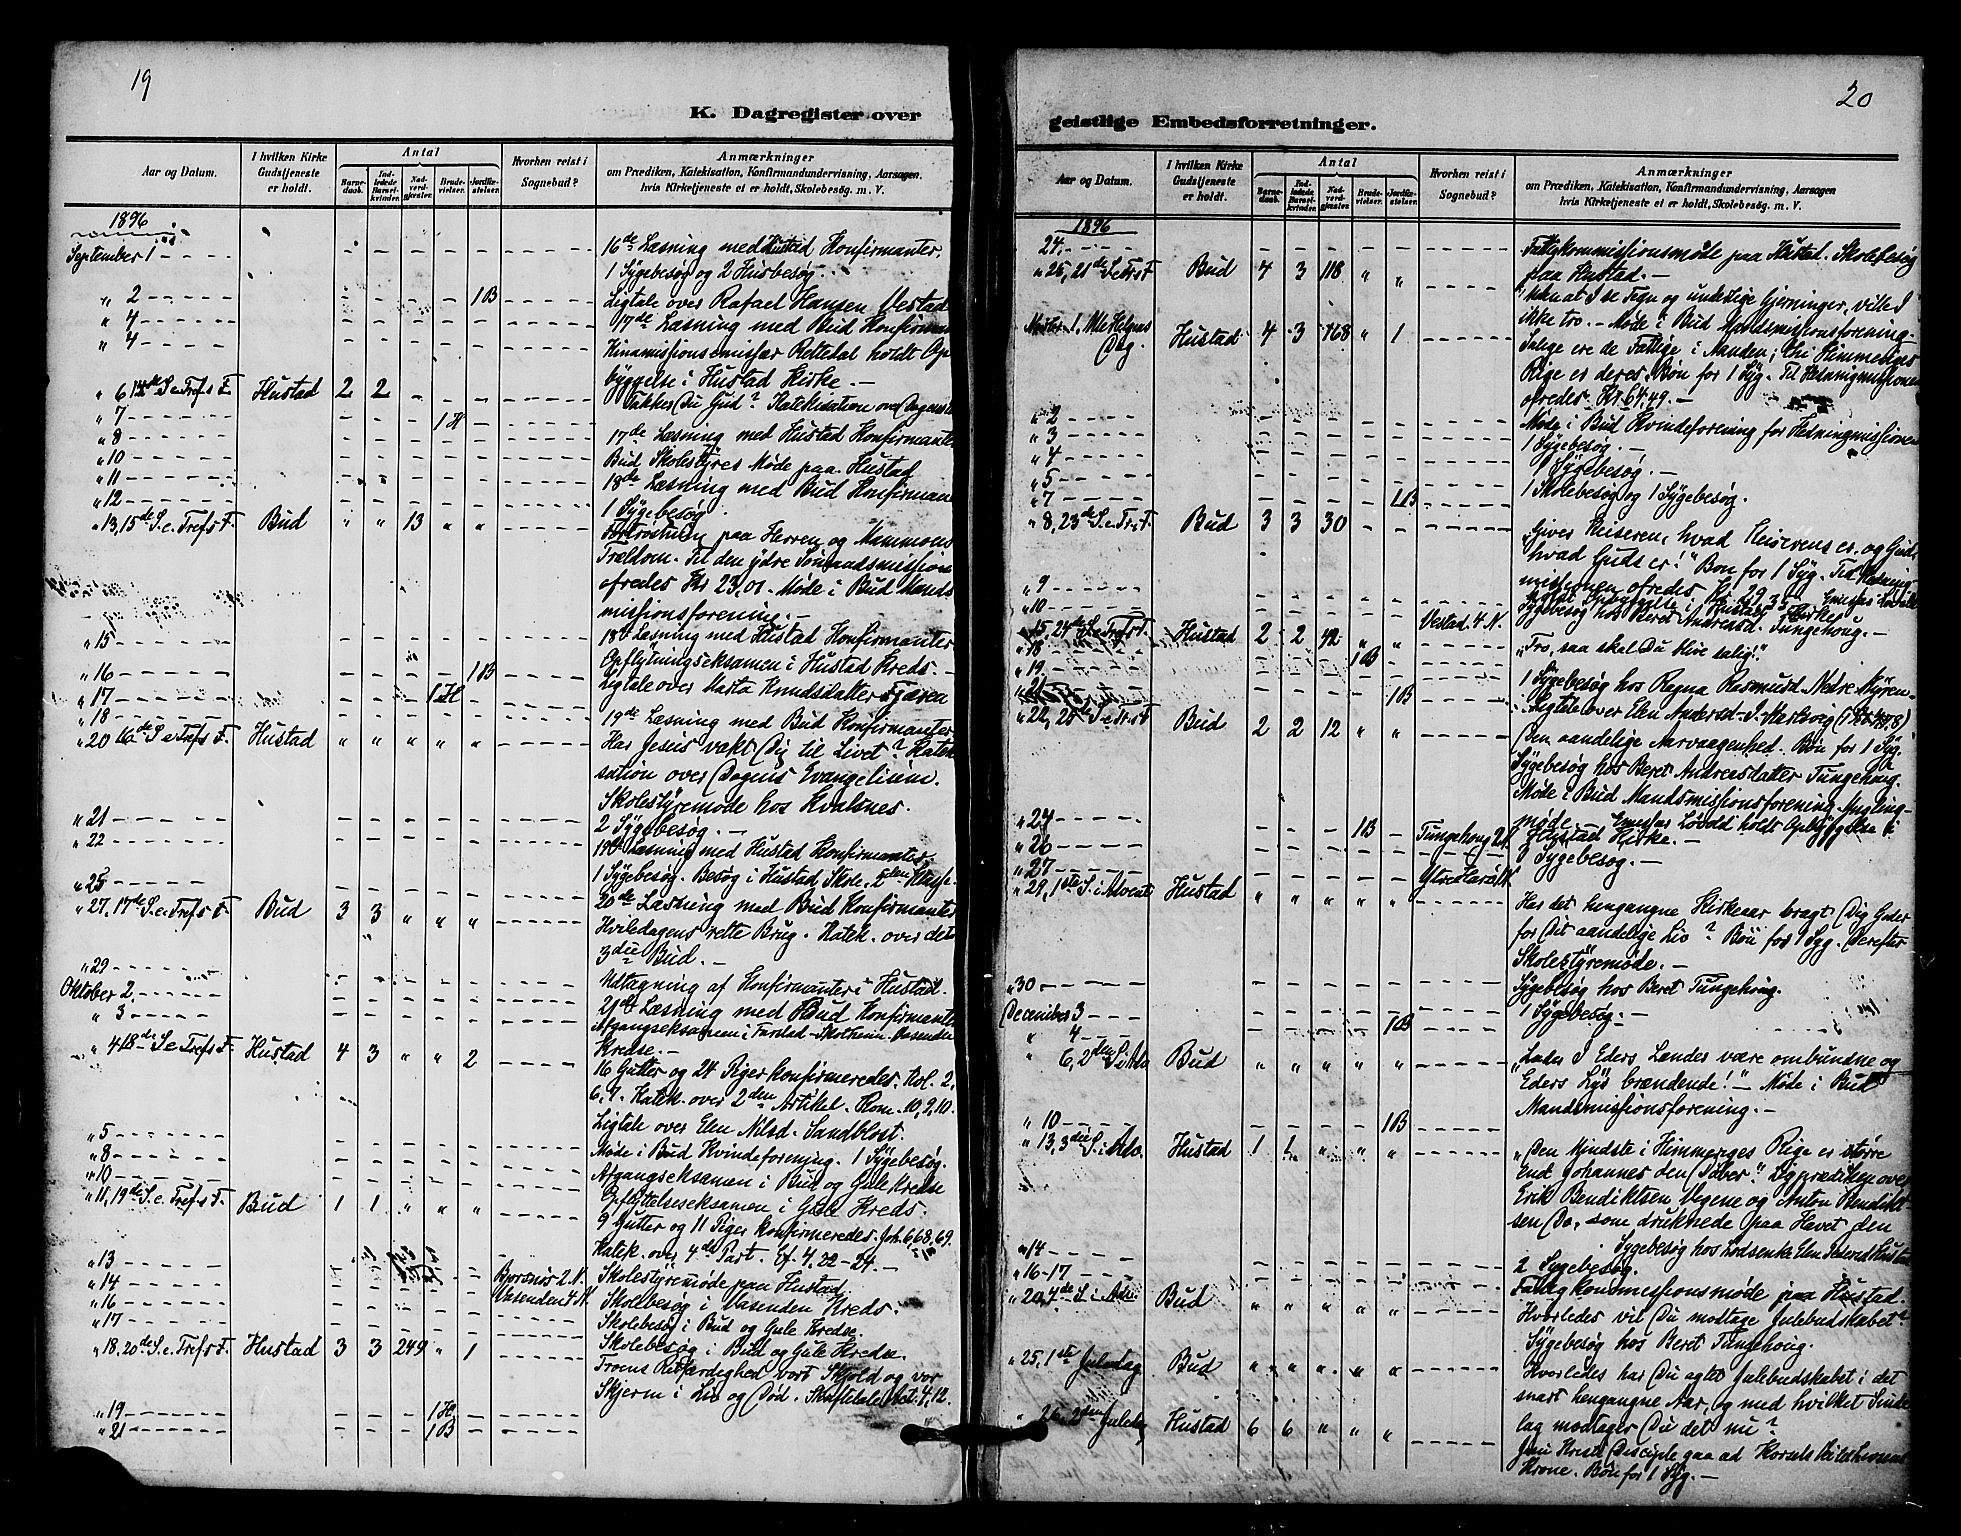 19
K. Dagregister over
Aar og Datum.
I hvilken Kirke Gudstjeneste er holdt.
Antal
Barnedaab.
Indledede Barselkvinder.
Nadverdgjæster.
Brudevielser.
Jordfæstelser.
Hvorhen reist i Sognebud?
Anmærkninger
om Prædiken, Katekisation, Konfirmandundervisning, Aarsagen,
hvis Kirketjeneste ei er holdt, Skolebesøg. m. V.
1896
September 1 16de Læsning med Hustad Konfirmanter.
1 Sygebesøg og 2 Husbesøg.
" 2 1B Ligtale over Rafael Hansen Vestad
" 4 17de Læsning med Bud Konfirman
" 4 Kinamissionsemissær Rettedal holdt Op
byggelse i Hustad Kirke. —
" 6 14de S. e. Trefs. F. Hustad 2 2 Takker Du Gud? Katekisation over Dagens
" 7 1H
" 8 17de Læsning med Hustad Konfirmanter
" 10 Bud Skolestyres Møde paa Hustad
" 11 18de Læsning med Bud Konfirman
" 12 1 Sygebesøg.
" 13, 15de S. e. Trefs. F. Bud " " 13 " " Fortrøstning paa Herren og Mammons
Trældom. Til den ydre Sømandsmission
ofredes Kr 23,01. Møde i Bud Mands
missionsforening. —
" 15 18de Læsning med Hustad Konfirmanter
Opflytningseksamen i Hustad Kreds. —
" 16 1B Ligtale over Marta Knudsdatter
" 17 1H
" 18 19de Læsning med Bud Konfirmanter
" 20 16de S. e. Trefs. F. Hustad " " " " " Har Jesus vakt Dig til Livet? Kateki
sation over Dagens Evangelium.
Skolestyremøde hos Kvalsnes.
" 21 2 Sygebesøg. —
" 22 19de Læsning med Hustad Konfirmanter
1 Sygebesøg. Besøg i Hustad Skole, 2den Klasse.
" 25 20de Læsning med Bud Konfirmanter
" 27, 17de S. e. Trefs. F. Bud 3 3 " " " Hviledagens rette Brug. Katek. over det
3die Bud. —
" 29 Udtagning af Konfirmanter i Hustad.
Oktober 2, 21de Læsning med Bud Konfirmanter
" 3 Afgangseksamen i Farstad-Skotheim-Vasenden
Kredse. —
" 4 18de S. e. Trefs. F. Hustad 4 3 " " 2 16 Gutter og 24 Piger konfirmeredes. Kol. 2,
6, 7. Katek. over 2den Artikel. Rom. 10, 9, 10.
Ligtale over Elen Nilsd. Sandblost.
" 5
" 8 Møde i Bud Kvindeforening. 1 Sygebesøg.
" 10 Afgangseksamen i Bud og Gule Kredse
" 11, 19de S. e. Trefs. F. Bud 1 1 " " " Opflyttelseseksamen i Gule Kreds.
9 Gutter og 11 Piger konfirmeredes. Joh. 6, 68, 69.
Katek. over 4de Part. Ef. 4, 22-24. —
" 13 Skolestyremøde paa Hustad
" 14 Bjørnør 2 N. Skolebesøg i Vasenden Kreds.
" 16 Vasenden 4 N. Skolebesøg i Bud og Gule Kredse.
" 17 Skolebesøg i Bud og Gule Kredse.
" 18, 20de S. e. Trefs. F. Hustad 3 3 249 " 1 Troens Retfærdighed vort Skjold og vor
Skjerm i Liv og Død. Skriftetale Act. 4, 12.
" 19 1H
" 21 1B
20
geistlige Embedsforretninger.
Aar og Datum.
I hvilken Kirke Gudstjeneste er holdt.
Antal
Barnedaab.
Indledede Barselkvinder.
Nadverdgjæster.
Brudevielser.
Jordfæstelser.
Hvorhen reist i Sognebud?
Anmærkninger
om Prædiken, Katekisation, Konfirmandundervisning, Aarsagen
hvis Kirketjeneste ei er holdt, Skolebesøg. m. V.
1896
24. Fattigkommissionsmøde paa Hustad. Skolebesøg
paa Hustad. —
" 25, 21de S. e. Trs. F. Bud 4 3 118 " " Uden at I se Tegn og underlige Gjerninger, ville I
ikke tro. — Møde i Bud Mandsmissionsforening
1, Alle Helgens Dag. Hustad 4 3 168 " 1 Salige ere de Fattige i Aanden; thi Himmeriges
Rige er deres. Bøn for 1 Syg. Til Hedningmissionen
ofredes Kr. 64,49. —
" 2 Møde i Bud Kvindeforening for Hedningmissionen
" 3 1 Sygebesøg.
" 4 1 Sygebesøg. —
" 5 1 Skolebesøg og 1 Sygebesøg.
" 7 1B
" 8, 23de S. e. Trs. F. Bud 3 3 30 " " "Giver Keiseren, hvad Keiserens er, og Gud,
hvad Guds er!" Bøn for 1 Syg. Til Hedning
missionen ofredes Kr. 29,35.
" 9
" 10 Vestad 4 N. Sygebesøg hos Beret Andreasd. Tungehoug. —
" 15, 24de S. e. Trefs. F. Hustad 2 2 42 " " "Tro, saa skal Du blive salig!"
" 18 1B
" 19 1 Sygebesøg hos Ragna Rasmusd. Nedre Myren
" 21 1B Ligtale over Elen Andersd.
" 22, 25de S. e. Trs. F. Bud 2 2 12 " " Den aandelige Aarvaagenhed. Bøn for 1 Syg.
Sygebesøg hos Beret Andreasdatter Tungehoug.
Møde i Bud Mandsmissionsforening.
" 24 1B Emissær holdt Opbyggelse i
Hustad Kirke. —
" 26 Tungehoug 2 N. 1 Sygebesøg. —
" 27
" 29, 1ste S. i Advent Hustad " " " " " Har det hengangne Kirkeaar bragt Dig Goder
for Dit aandelige Liv? Bøn for 1 Syg. Derefter
Skolestyremøde. —
" 30 Sygebesøg hos Beret Tungehoug.
December 3 1 Sygebesøg. —
" 4 1B
" 6, 2den S. i Adv. Bud " " " " " "Lader I Eders Lænder være ombundne og
Eders Lys brændende!" — Møde i Bud
Mandsmissionsforening. —
" 10 1B
" 13 3die S. i Adv. Hustad 1 1 " " " "Den Mindste i Himmeriges Rige er større
End Johannes den Døber". Ligprædiken over
Erik Bendiktsen Vegene og Anton Bendikt
sen Do, som druknede paa Havet den
" 14 Sygebesøg hos
" 16-17 2 Sygebesøg.
Fattigkommissionsmøde paa Hustad.
" 20, 4de S. i Adv. Bud " " " " " Hvorledes vil Du modtage Julebudskabet?
Sygebesøg hos Beret Tungehoug.
" 25, 1ste Juledag Bud " " " " " Hvorledes har Du agtet Julebudskabet i det
snart hengangne Aar, og med hvilket Sinde
lag modtager Du det nu?
" 26, 2den Juledag Hustad 6 6 " " " Jesu Kristi Disciple gaa ad Korsets Vei til Livsens
Krone. Bøn for 1 Syg. —